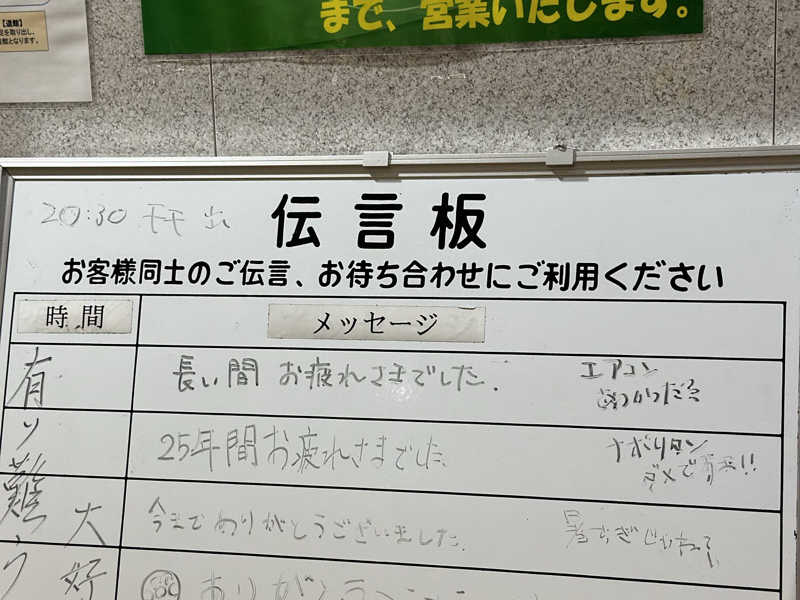 【退館】
まで、営業いたします。
20:30
伝言板
お客様同士のご伝言、お待ち合わせにご利用ください
時間 メッセージ
長い間 お疲れさまでした. エアコン
25年間お疲れさまでした. ナポリタン
ダメで
今までありがとうございました.
ありがとう
有り難う
大好